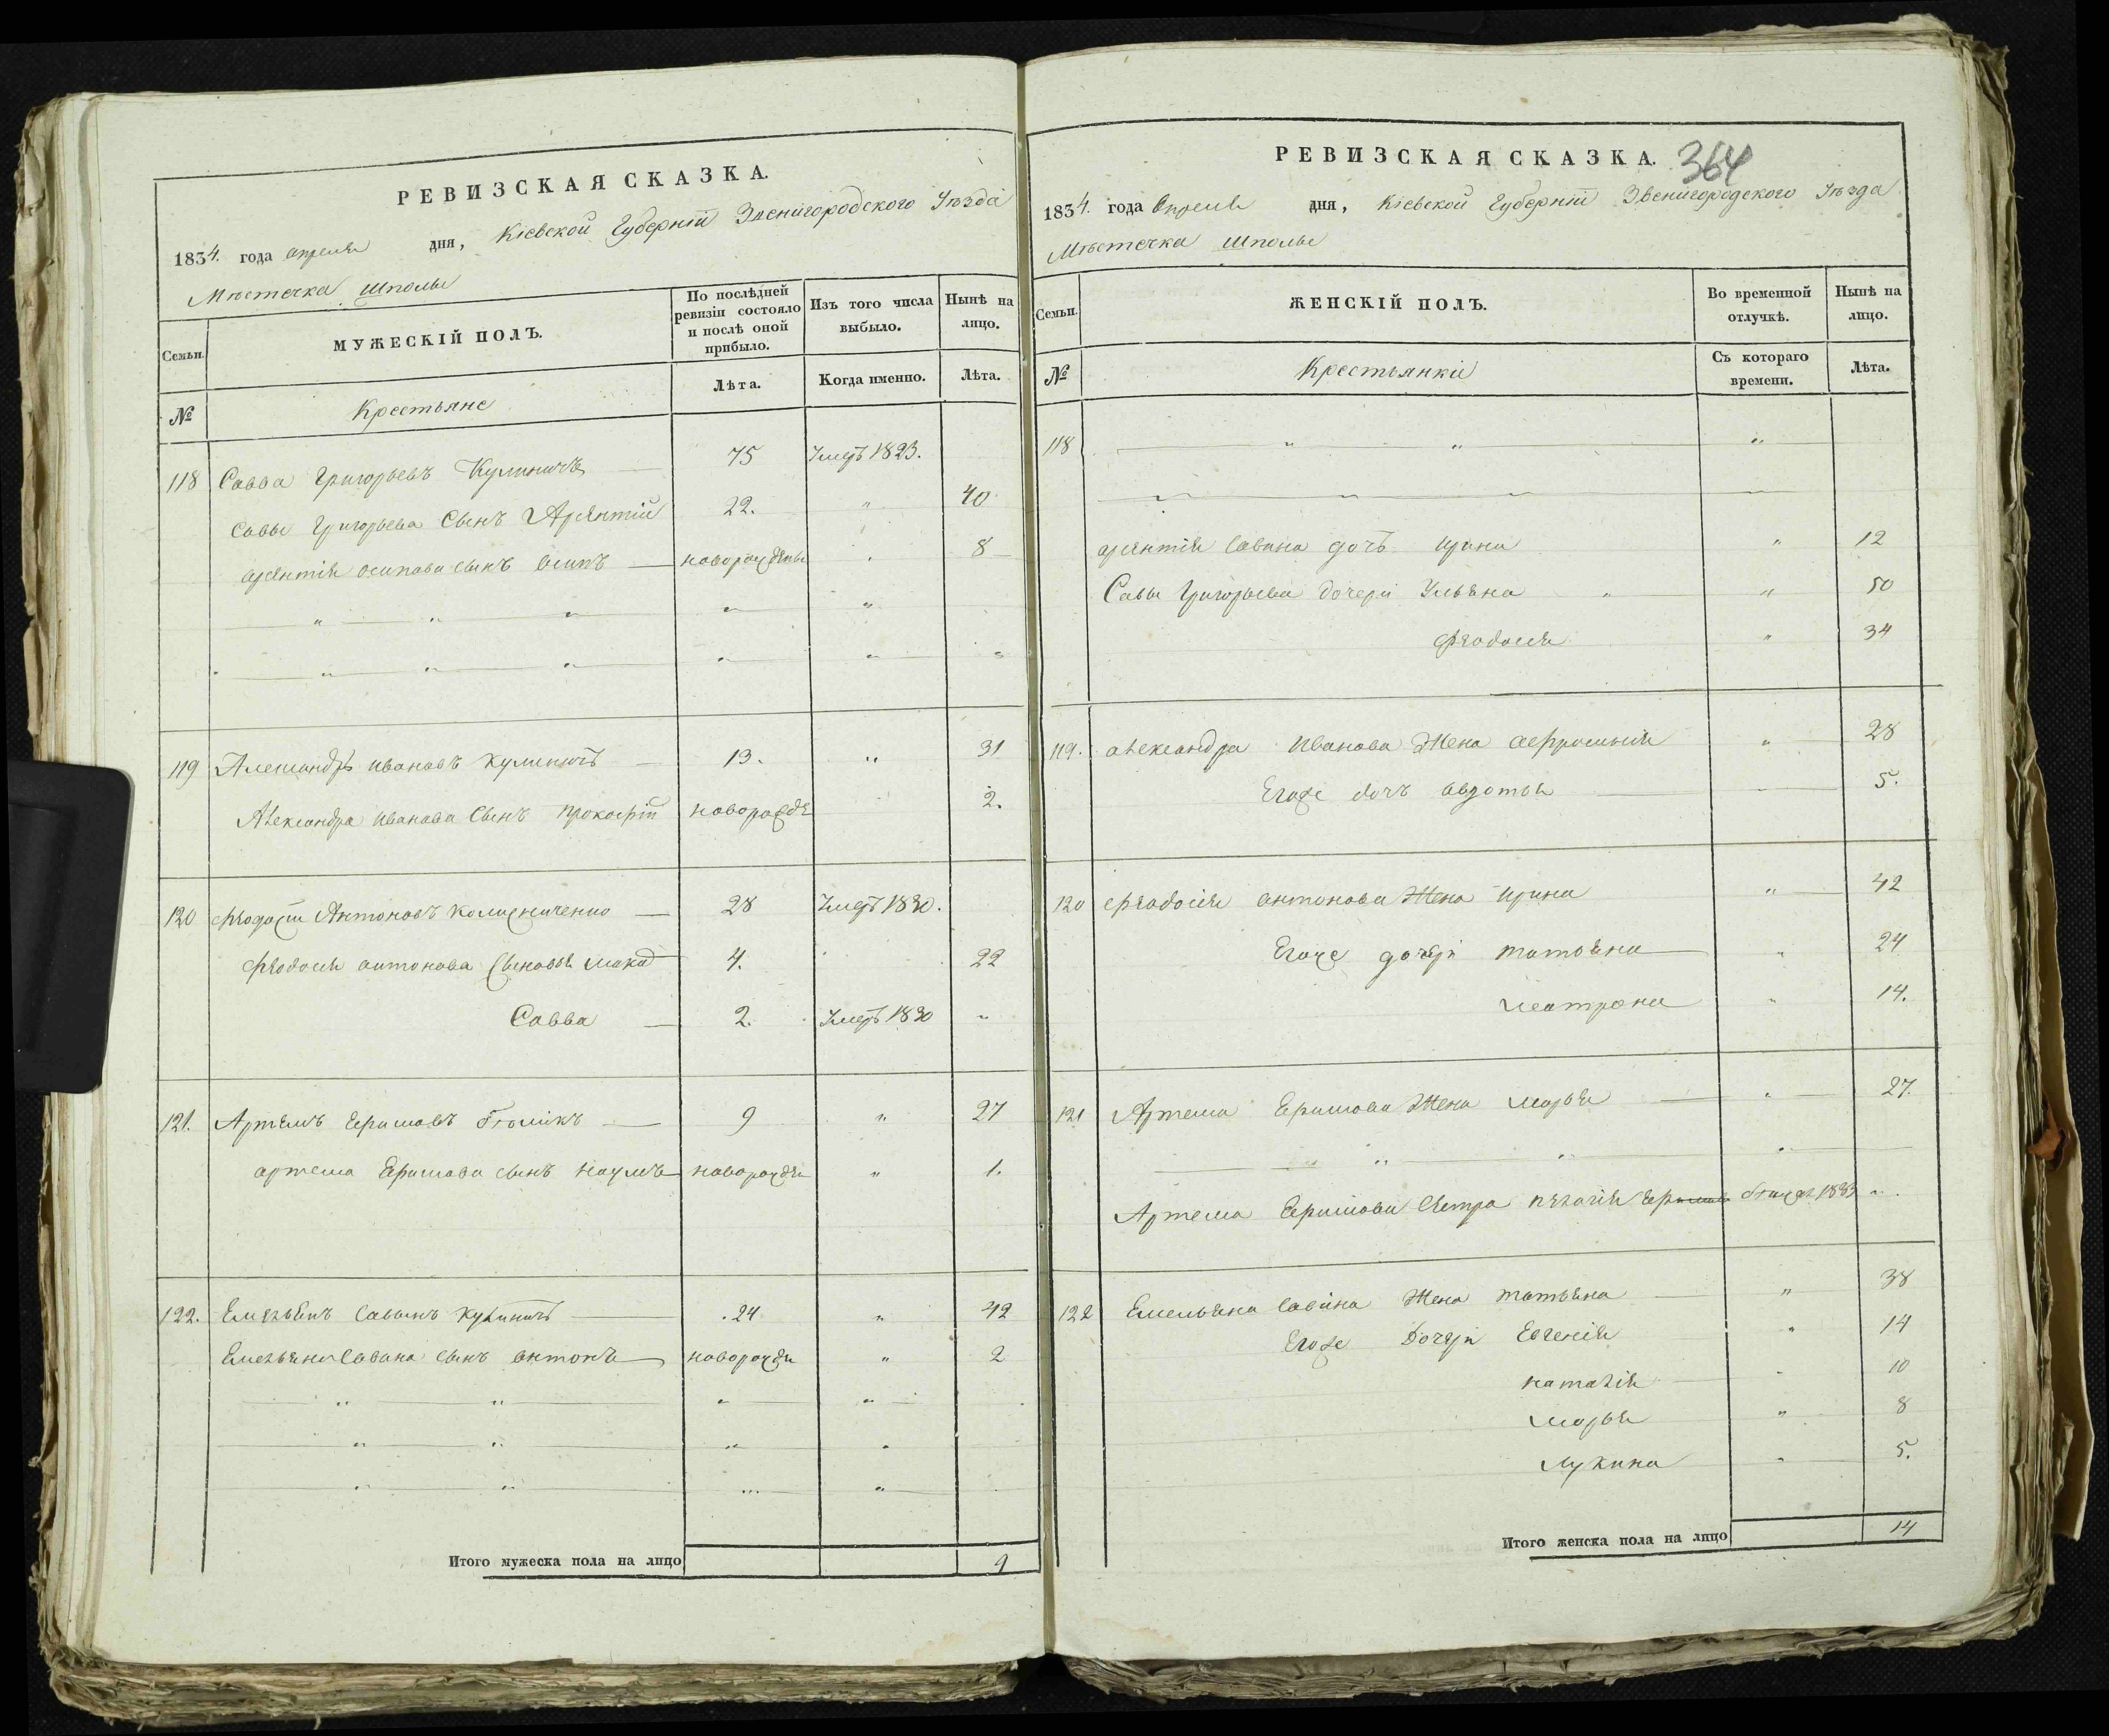 РЕВИЗСКАЯ СКАЗКА.
1834. года апреля дня, Кіевской Губерніи Звенигородского Уѣзда
Мѣстечка Шполы
Семьи.
МУЖЕСКІЙ ПОЛЪ.
По послѣдней ревизіи состояло и послѣ оной прибыло.
Изъ того числа выбыло.
Нынѣ на лицо.
№
Крестьяне
Лѣта.
Когда именно.
Лѣта.
118 Савва Григорьевъ Кулиничъ 75 Умеръ 1823.
Савы Григорьева Сынъ 22. " 40
осипова сынъ Осипъ 8
119 Александръ Ивановъ Кулиничъ 13. " 31
Александра Иванова Сынъ Прокофій новорожде 2.
120 Антоновъ 28 Умеръ 1830.
Феодосія антонова Сыновья 4. 22
Савва 2. Умеръ 1830 "
121. Артемъ 9 " 27
артема сынъ Наумъ новорожде " 1.
122. Емельянъ Савинъ Кулиничъ 24 " 42
Емельяна Савина сынъ антонъ новорожде " 2
Итого мужеска пола на лицо 9
РЕВИЗСКАЯ СКАЗКА. 364
1834. года Апреля дня, Кіевской Губерніи Звенигородского Уѣзда
Мѣстечка Шполы
Семьи.
ЖЕНСКІЙ ПОЛЪ.
Во временной отлучкѣ.
Нынѣ на лицо.
№
Крестьянки
Съ котораго времени.
Лѣта.
118 " " "
Савина дочь Ирина " 12
Савы Григорьева дочери Ульяна " 50
Феодосія " 34
119. александра Иванова Жена " 28
Егоже дочь Авдотья 5.
120 Феодосія антонова Жена Ирина " 42
Егоже дочери татьяна " 24
Матрона " 14.
121 Артема Жена Марья " 27.
Артема Сестра 1833
122 Емельяна Савина Жена татьяна " 38
Егоже Дочери Евгенія " 14
наталія " 10
Марья " 8
Лукина " 5.
Итого женска пола на лицо 14